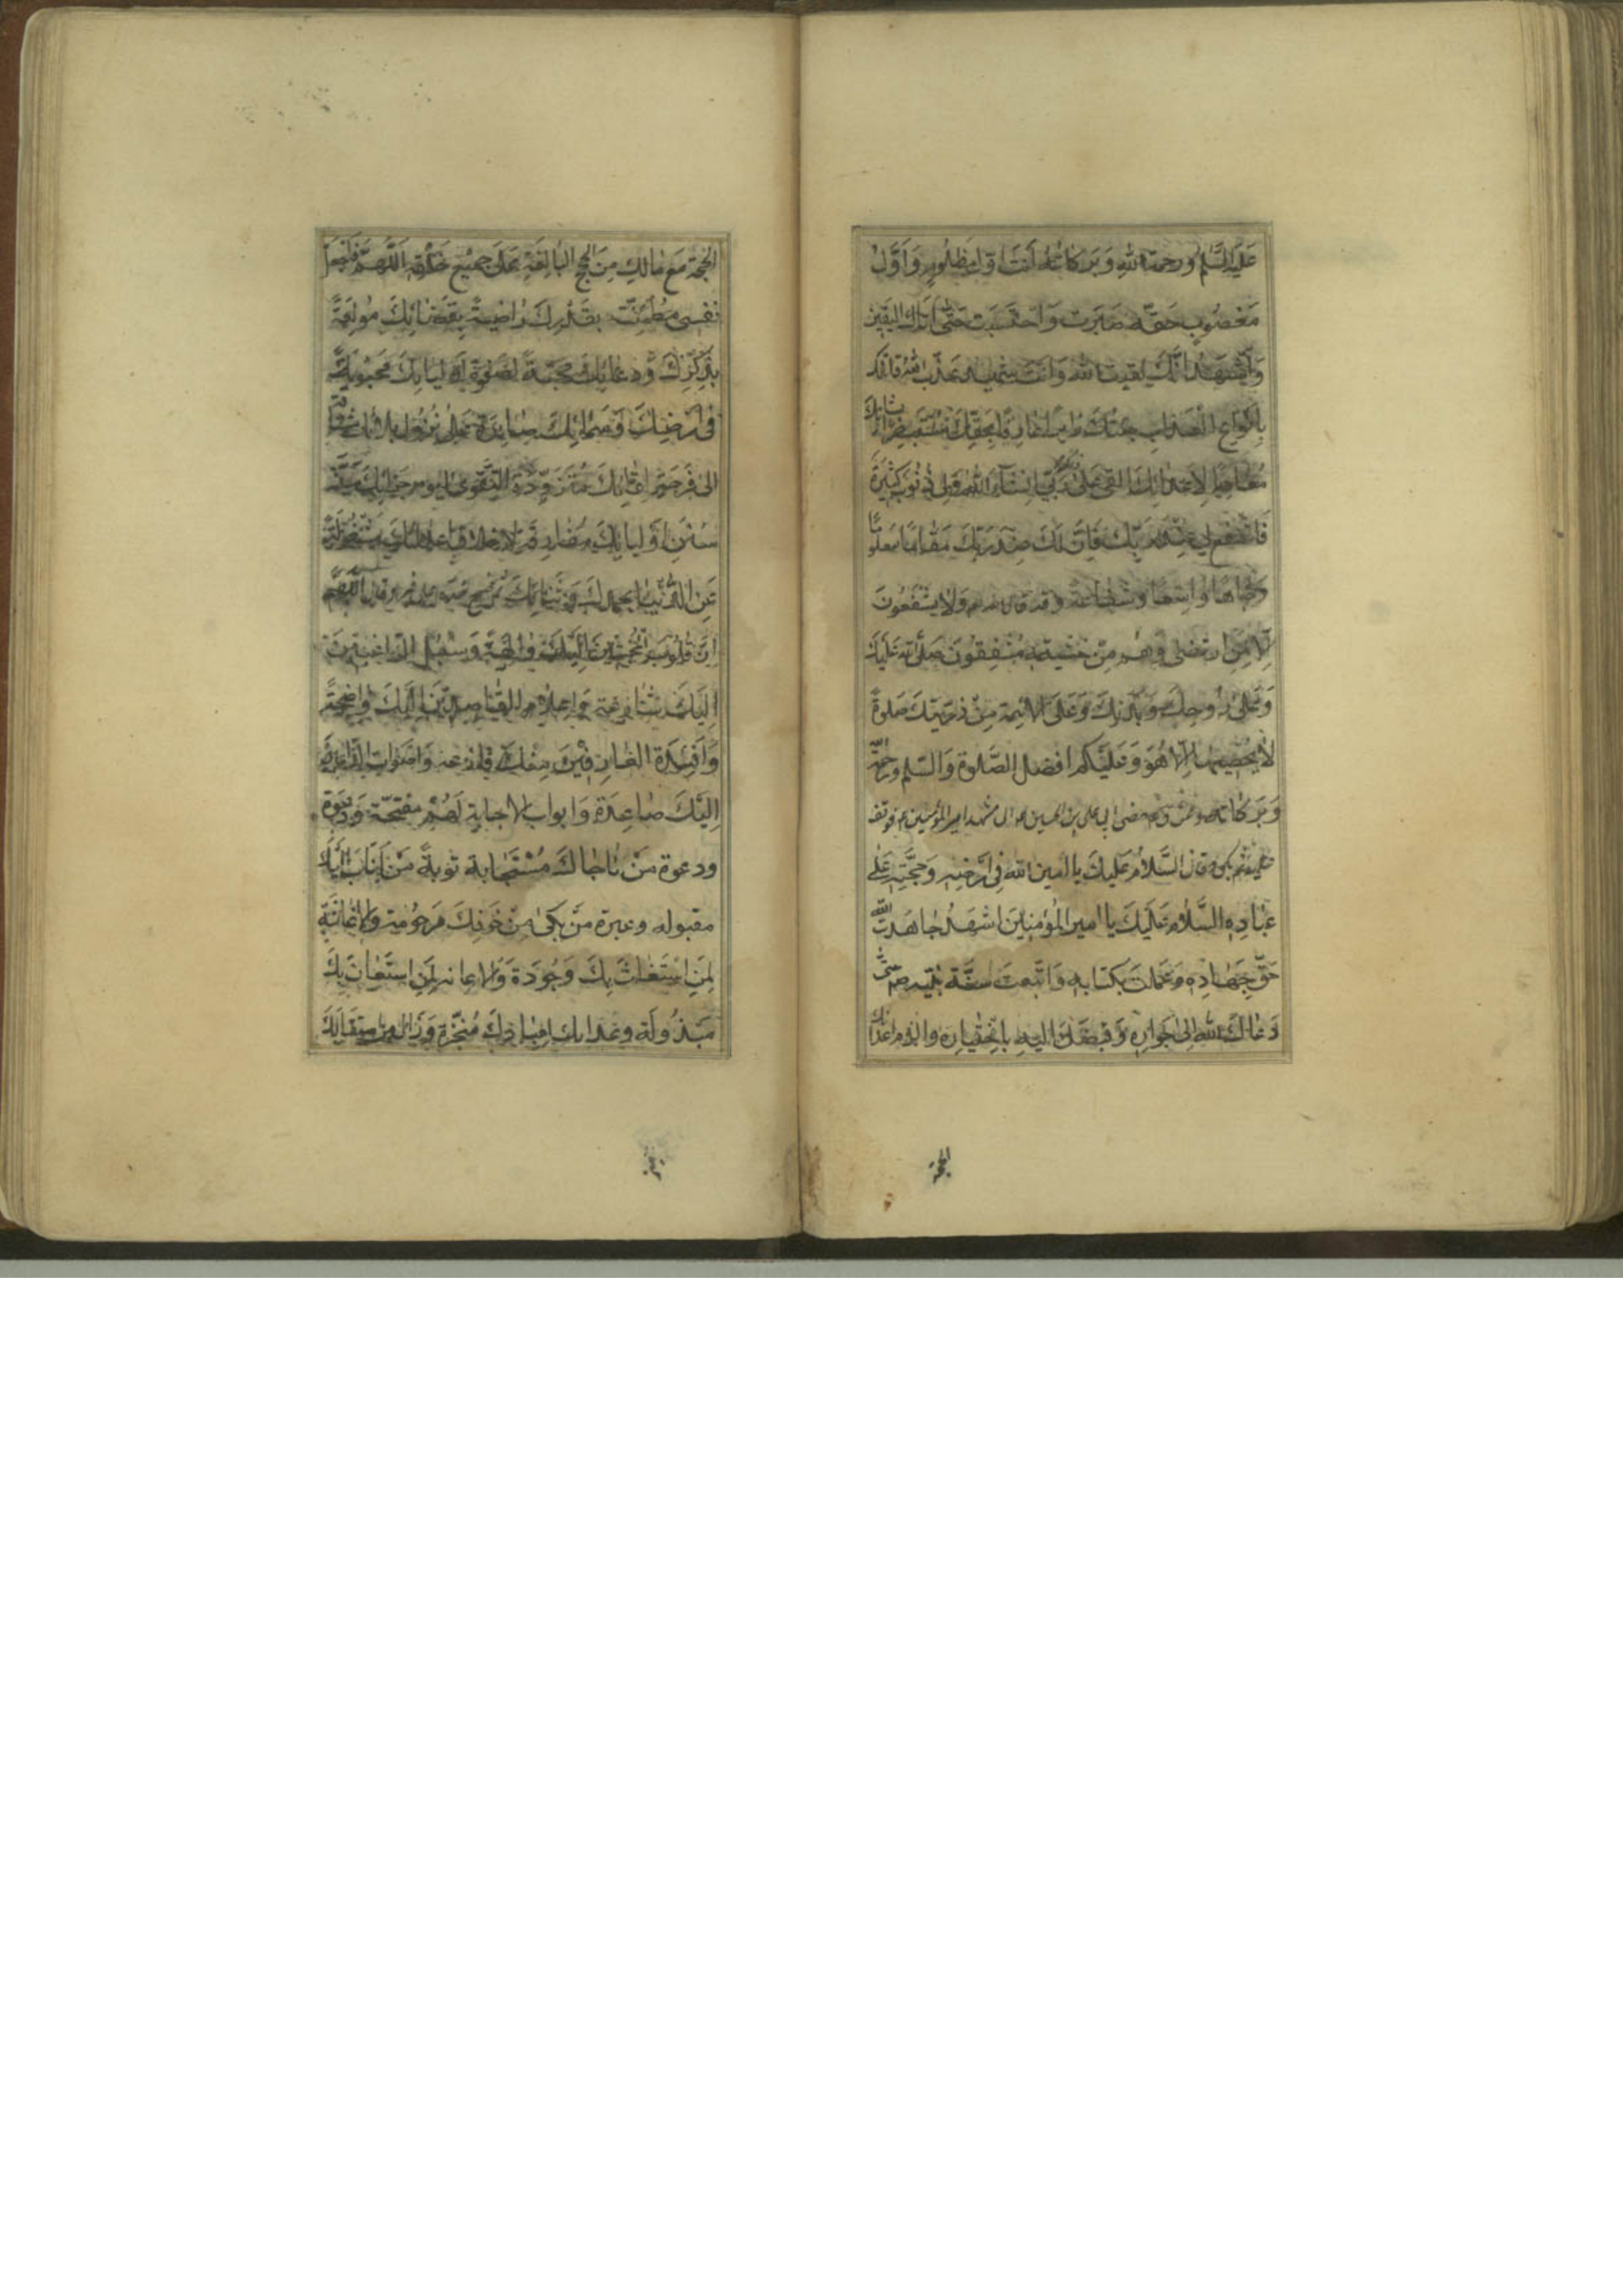 عَلَيْكَ السَّلٰمُ وَرحمة اللهِ وَبَرَكَاتُهُ اَنتَ اَوَّلُ مَظلُومٍ وَاَوَّلُ
مَغصُوبٍ حَقّه صَبَرتَ وَاحتَسَبتَ حَتّٰى اَتٰاكَ اليَقين
وَاَشْهَدُ اَنَّكَ لَقيتَ الله وَاَنتَ شهيد عَذَّبَ اللهُ قاتِلَكَ
بِاَنْوَاعِ العَذابِ جئتُكَ عٰارِفًا بِحَقِّكَ مُستَبصِرًا بِشَانِكَ
مُعٰادِيًا لِاَعدٰائِكَ اَلقىٰ عَلىٰ ذٰلِكَ رَبّى اِنشٰآءَ اللهُ وَلى ذُنُوبٌ كَثيرَةٌ
فَاشفَع لى عِندَ رَبِّكَ فَاِنَّ لَكَ عِندَ رَبِّكَ مَقٰامًا مَعلُومًا
وَجٰاهًا وٰاسِعًا وَشَفٰاعَةً وقد قال وَلٰا يَشْفَعُونَ
اِلّٰا لِمَنِ ارتَضىٰ وَهُم مِنْ خَشْيَتِهِ مُشْفِقُونَ صَلَّى الله عَلَيْكَ
وَعَلىٰ رُوحِكَ وَبَدَنِكَ وَعَلَى الائمة مِنْ ذُرّيّتِكَ صَلوةً
لٰا يُحْصيهٰا اِلّٰا هُوَ وَعَلَيْكُم افضل الصَّلوة وَالسّلٰم وَرحمة الله
وَبَرَكٰاته مضى ابى على بن الحسين الى مشهد امير المؤمنين ع فوقف
عليه ثم بكى وقال السَّلٰامُ عَلَيكَ يا اَمينَ اللهِ فى اَرْضِهِ وَحُجَّتِه عَلى
عِبٰادِهِ السَّلٰام عَلَيْكَ يا امير المُؤمِنينَ اشهَدُ جٰاهَدتَ فى الله
حَقَّ جِهٰادِهِ وَعَمِلتَ بِكتٰابِهِ وَاتَّبَعتَ سُنَّة نَبيّه ص حتّى
دَعٰاكَ اللهُ اِلىٰ جَوٰارِهِ وَقَبَضَكَ اِلَيهِ بِاختِيٰارِهِ والزم اعداءك
الحجة
الحُجّة مَعَ مٰا لَكَ مِنَ الحُجَجِ البٰالِغَةِ عَلىٰ جَميعِ خَلْقِهِ اَللّٰهُمَّ فَاجْعَل
نَفسى مُطمَئِنَّة بِقَدَرِكَ رٰاضيَةً بِقَضٰائِكَ مُولَعَةً
بِذِكْرِكَ وَدُعٰائِكَ مُحِبَّةً لِصَفوَةِ اَوْليٰائِكَ مَحْبُوبَةً
فى اَرضِكَ وَسَمٰائِكَ صٰابِرَةً عَلىٰ نُزُولِ بَلٰائِكَ مُشتٰاقَةً
الىٰ فَرحَةِ لِقٰائِكَ مُتَزَوِّدَةً التَّقوىٰ لِيَومِ جَزٰائِكَ مُستَنَّةً
بِسُنَنِ اَوليٰائِكَ مُفٰارِقَةً لِاَخلاقِ اَعدٰائِكَ مَشْغُولَةً
عَنِ الدُّنْيٰا بِحَمدِكَ وَثَنٰائِكَ ثم وضع خده على قبره وقال اللّٰهُمَّ
اِنَّ قُلُوبَ المُخبِتينَ اِلَيكَ وٰالِهَةٌ وَسُبُلَ الرّٰاغِبينَ
اِلَيكَ شٰارِعَة وَاعلٰام القٰاصِدينَ اِلَيكَ وٰاضِحَةٌ
وَاَفئِدَةَ العٰارِفينَ مِنكَ فٰازعة وَاَصْوٰات الدّٰاعينَ
اِلَيْكَ صٰاعِدَة وَابواب الاجابة لَهُمْ مفتحّة وَدَعوَة
ودعوة مَنْ نٰاجٰاكَ مُسْتَجٰابة تَوبَةً مَنْ اَنٰابَ اِلَيكَ
مقبوله وعبرة مَن بَكىٰ مِنْ خَوفِكَ مَرحُومَة وَالاغٰاثَةِ
لِمَنِ اسْتَغٰاثَ بِكَ مَوجُودَة وَالاعانه لِمَنِ استَعٰانَ بِكَ
مَبذُولَة وعداتك لِعبٰادِكَ مُنجَزَة وَزَلَل من استَقٰالَكَ